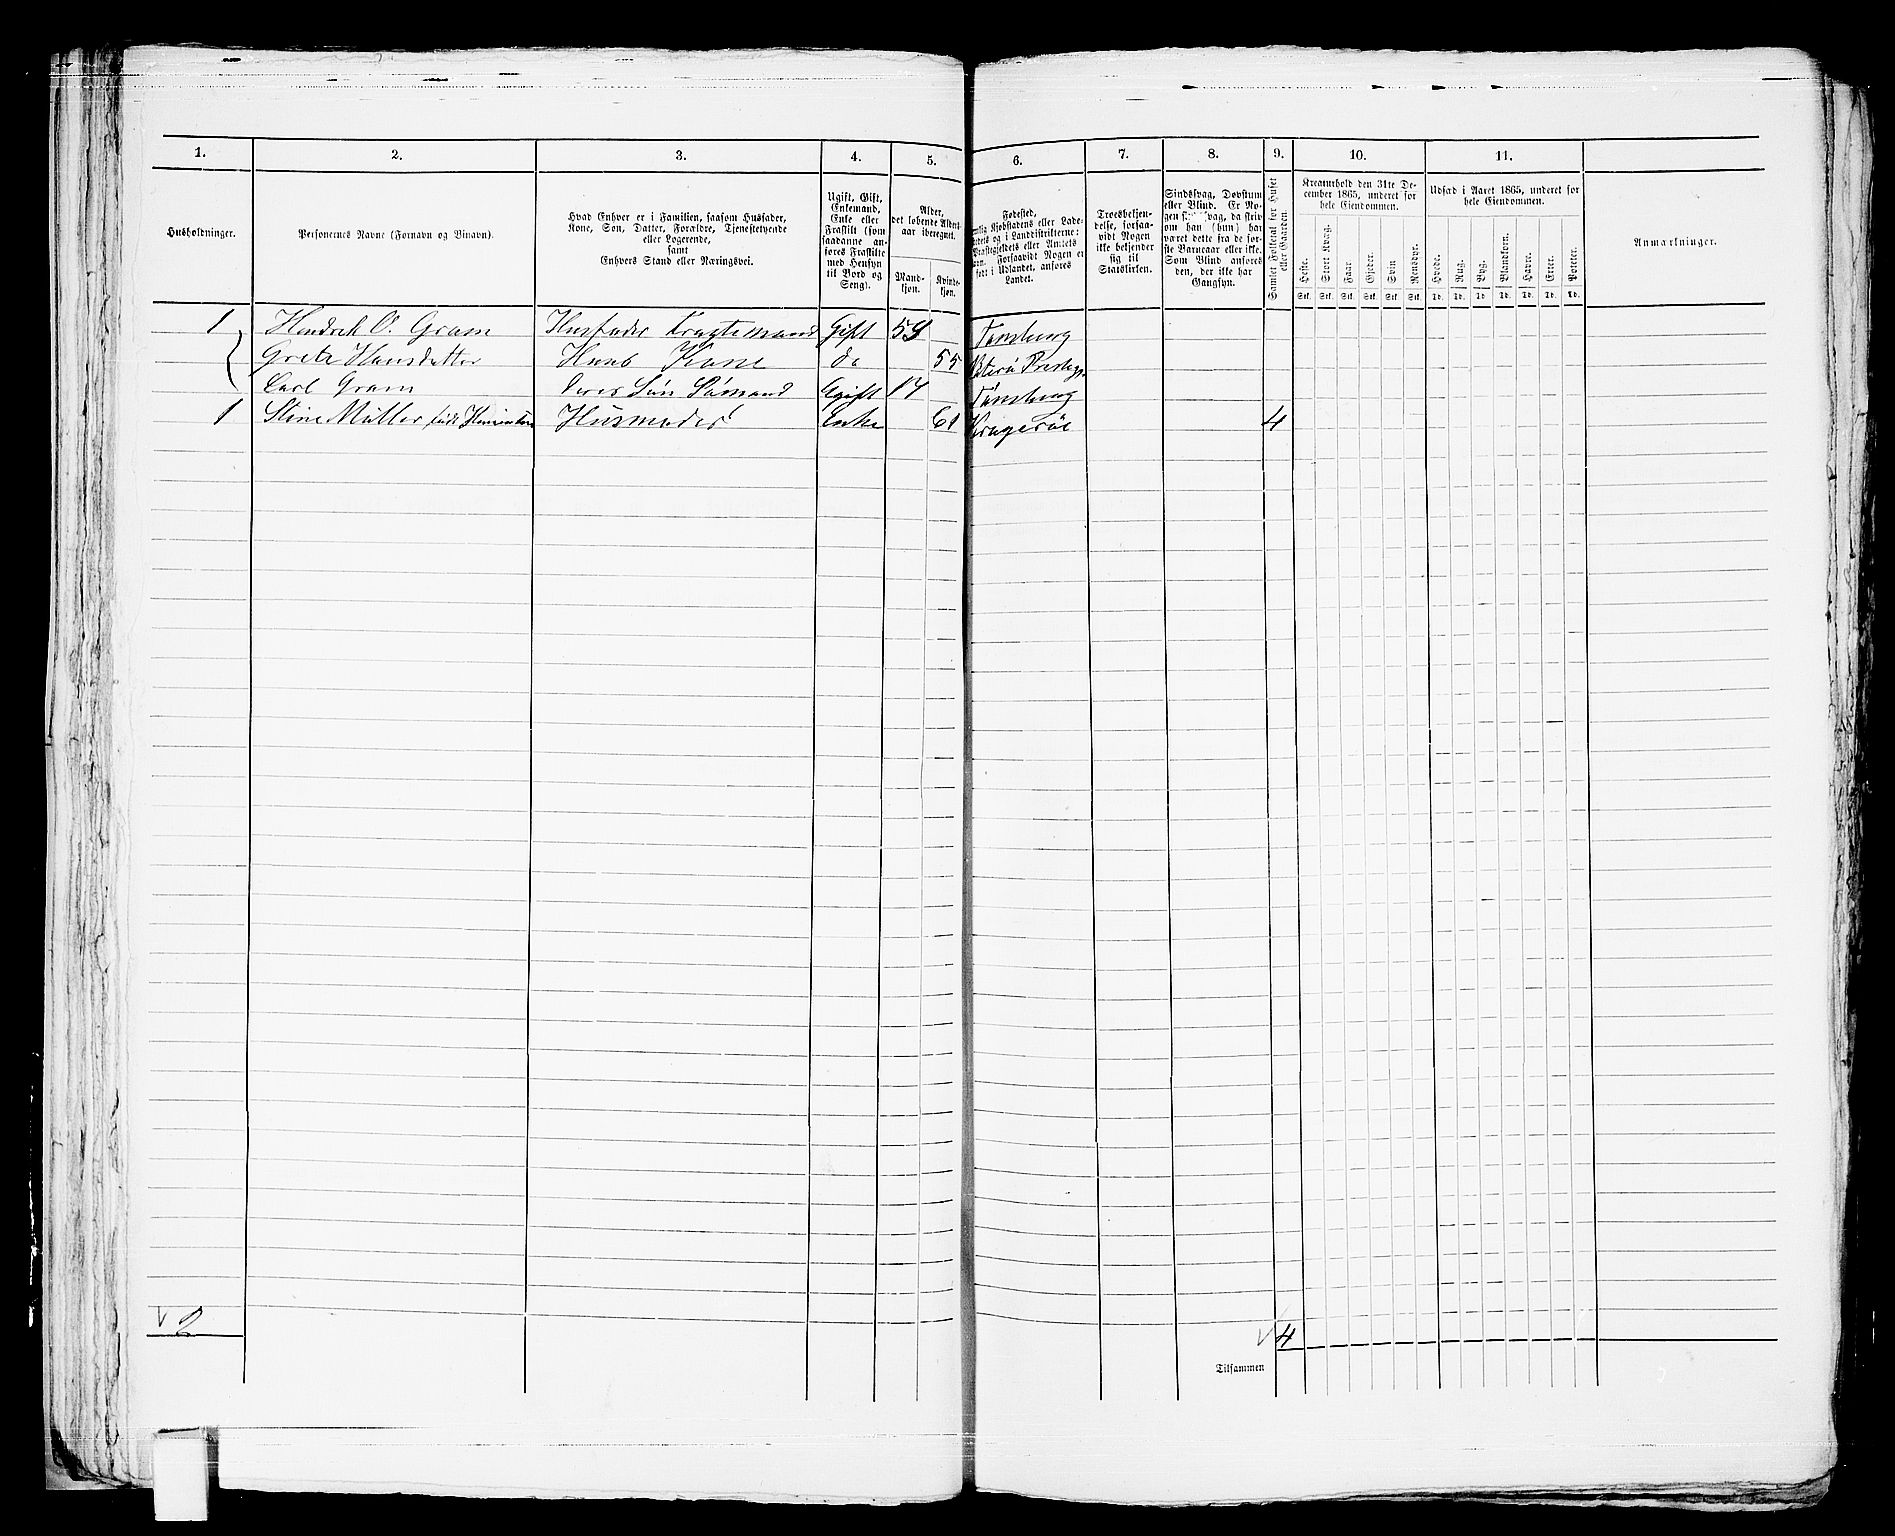 1. 2. 3. 4. 5. 6. 7. 8. 9. 10. 11.
Husholdninger.
Personernes Navne (Fornavn og Tilnavn).
Hvad Enhver er i Familien, saasom Husfader,
Kone, Søn, Datter, Forældre, Tjenestetyende
eller Logerende,
samt
Enhvers Stand eller Næringsvei.
Ugift, Gift,
Enkemand,
Enke eller
Fraskilt (som
saadanne an-
føres Fraskilte
med Hensyn
til Bord og
Seng).
Alder,
det løbende Alders-
aar iberegnet.
Mand-
kjøn.
Kvinde-
kjøn.
Fødested,
Kjøbstadens eller Lade-
stedets og i Landdistrikterne:
Præstegjeldets eller Annexets
Navn. Forsaavidt Nogen er
født i Udlandet, anføres
Landet.
Troesbekjen-
delse, forsaa-
vidt Nogen
ikke bekjender
sig til
Statskirken.
Sindssvag, Døvstum
eller Blind. Er No-
gen Sindssvag, da skriv
om han (hun) har
været dette fra de før-
ste Barneaar eller ikke.
Som Blind ansøres
den, der ikke har
Gangsyn.
Samlet Folketal for Huset
eller Gaarden.
Kreaturhold den 31te De-
cember 1865, underet for
hele Eiendommen.
Heste. Stort Kvæg. Faar. Gjeder. Svin Rensdyr.
Stk. Stk. Stk. Stk. Stk. Stk.
Udsæd i Aaret 1865, underet for
hele Eiendommen.
Hvede. Rug. Byg. Blandkorn. Havre. Erter. Poteter.
Td. Td. Td. Td. Td. Td. Td.
Anmærkninger.
1 Hendrik O. Gram Husfader Fragtemand Gift 59 Tønsberg
Grete Hansdatter Hans Kone do 55 Præsteg.
Carl Gram Deres Søn Sømand Ugift 17 Tønsberg
1 Stine Müller Husmoder Enke 61 Kragerøe 4
2 4
Tilsammen